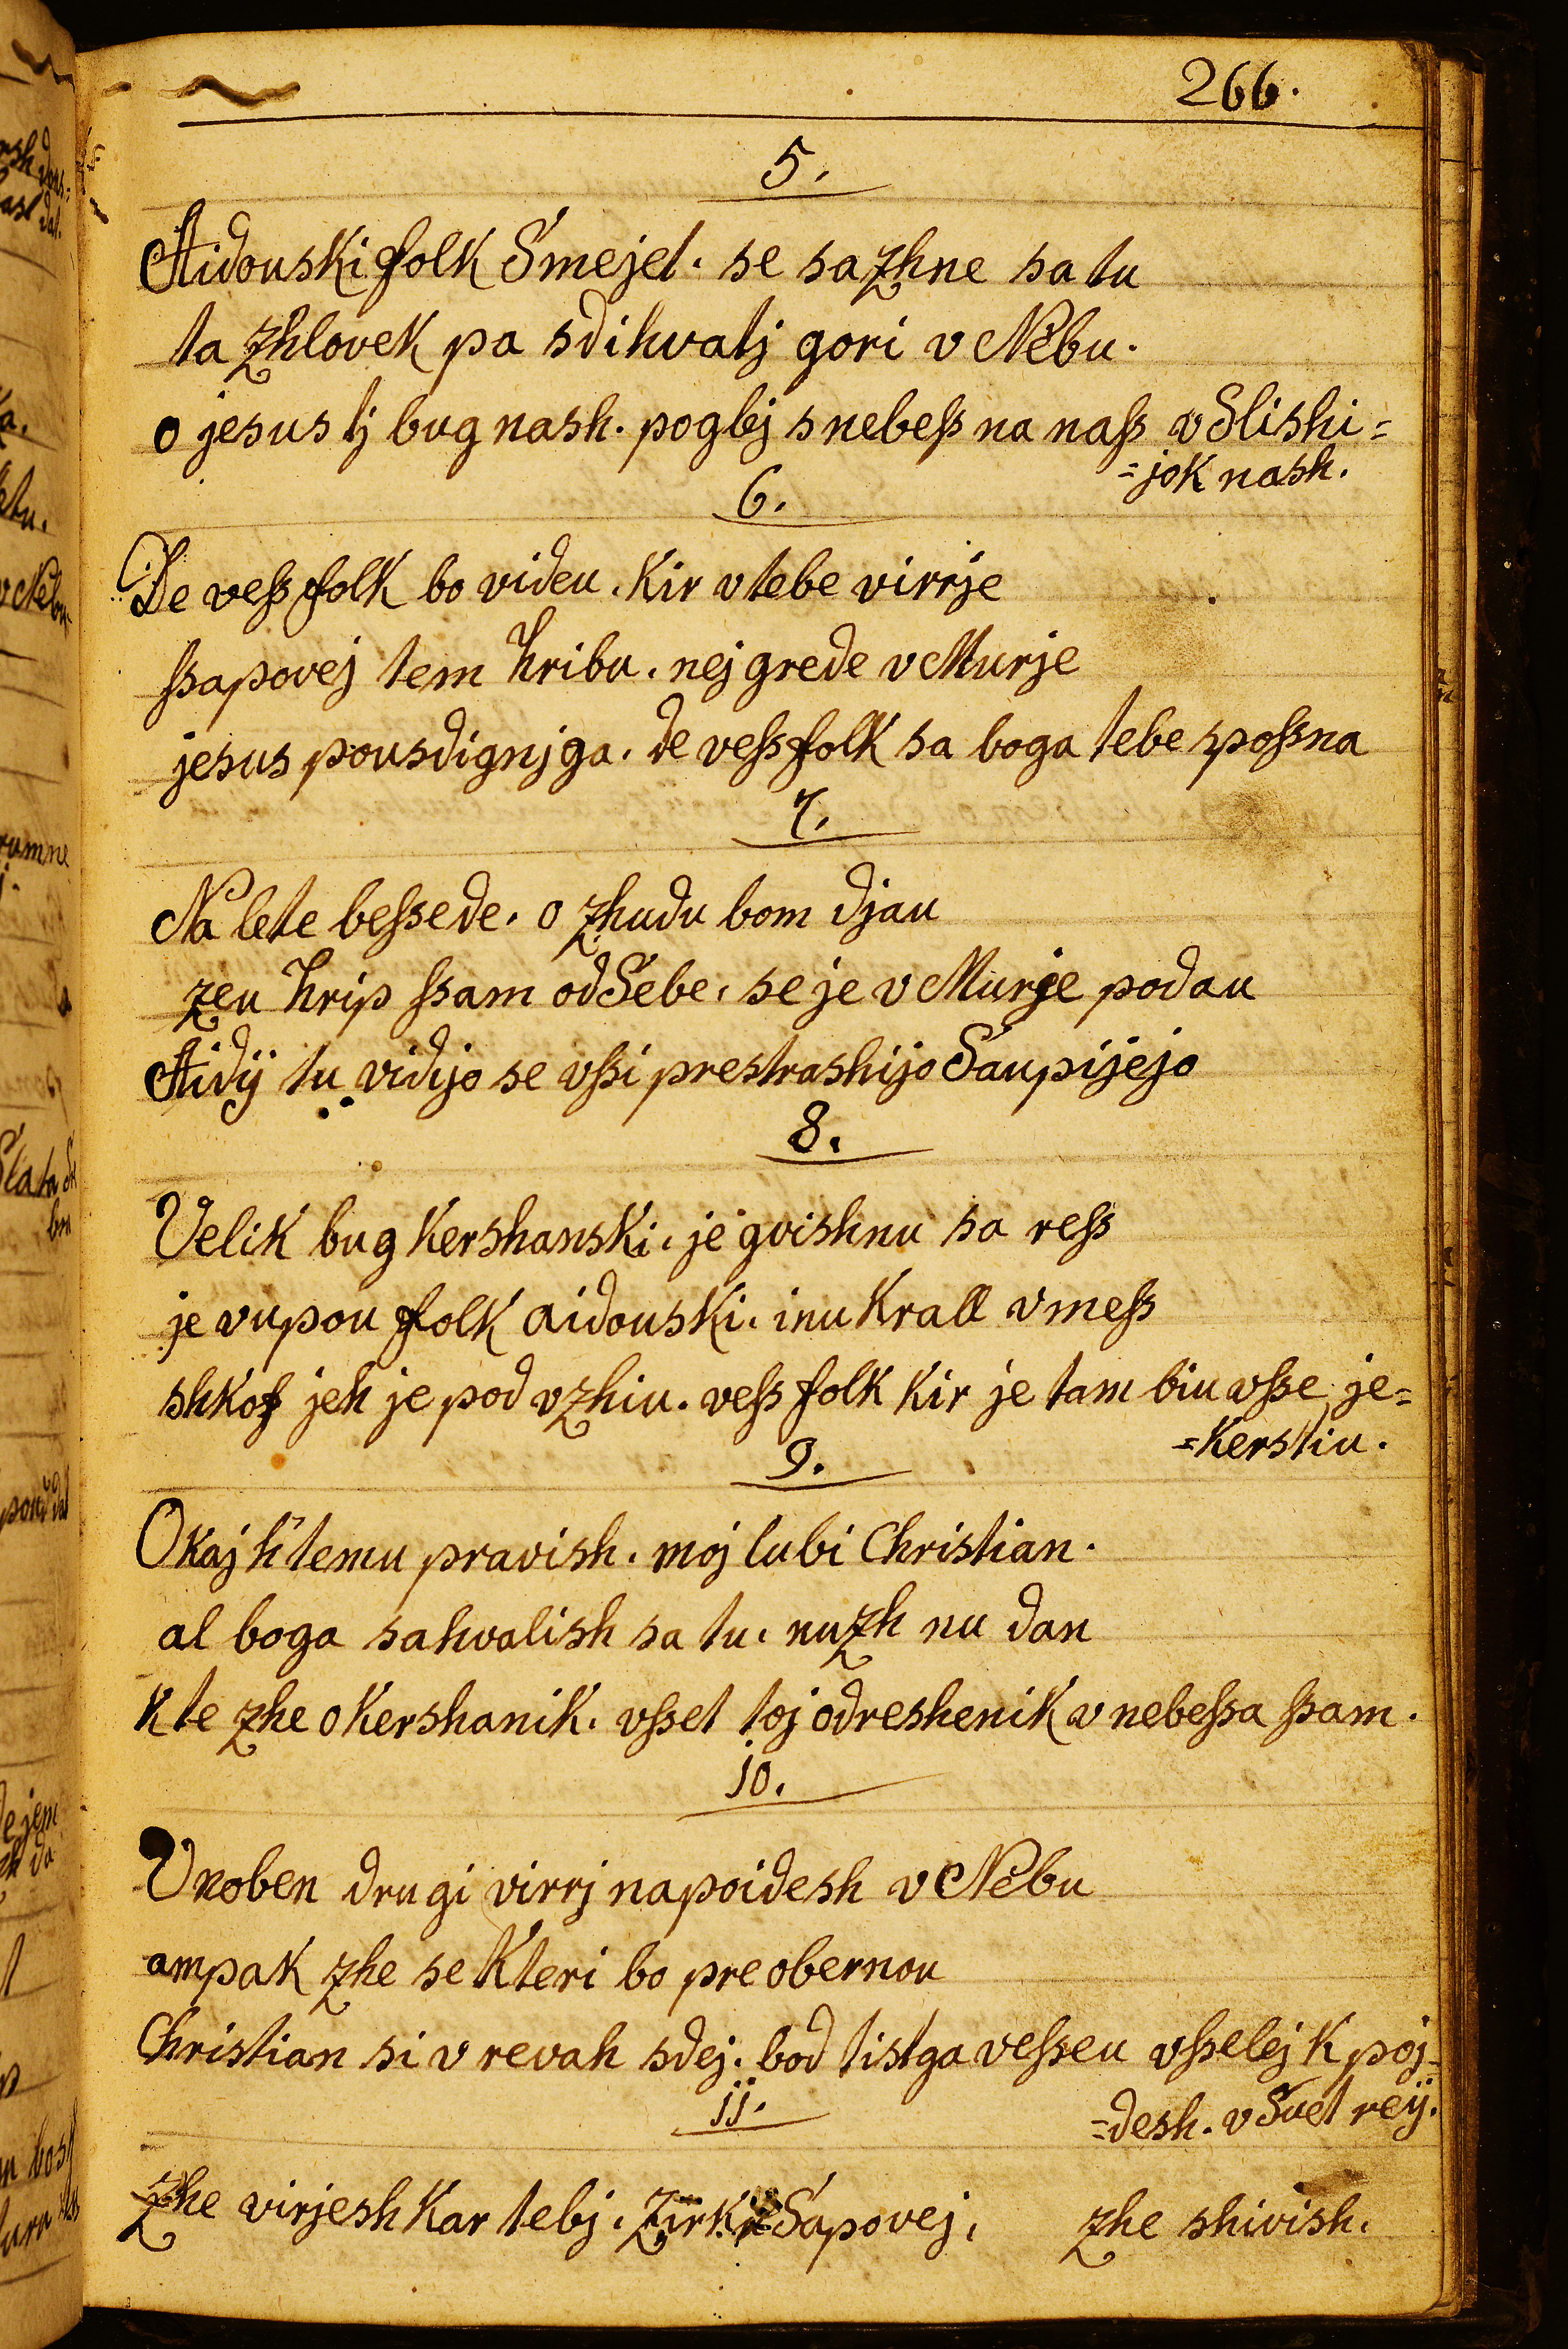 266.
5.
Aidouski folk Smejet. se sazhne sa tu
ta zhlovek pa sdihvatj gori v Nebu.
o jesus tj bug nash. poglej s nebeſs na naſs vSlishi=
=jok nash.
6.
De veſs folk bo videu. Kir v tebe virrje
ſsapovej tem hribu. nej grede v Murje
jesus pousdignj ga. de veſs folk sa boga tebe spoſsna
7.
Na lete beſsede. o zhudu bom djau
zeu hrip ſsam od Sebe. se je v Murje podau
Aidÿ tu vidijo se vſsi prestrashijo Saupijejo
8.
Velik bug Kershanski. je gvishnu sa reſs
je vupou folk aidouski. inu Krall vmeſs
shkof jeh je pod vzhiu. veſs folk Kir je tam biu vſse je=
=Kerstiu.
9.
O Kaj h'temu pravish. moj lubi Christian.
al boga sahvalish sa tu. nuzh nu dan
K te zhe o Kershanik. vſset toj odreshenik v nebeſsa ſsam.
10.
V noben drugi virrj napoidesh v Nebu
ampak zhe se Kteri bo preobernou
Christian si v revah sdej. bod tistga veſseu vſselej K poj=
=desh. v Svet reÿ.
11.
Zhe virjesh Kar tebj. Zirku Sapovej. zhe shivish.